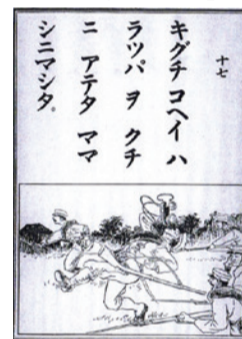 十七
キグチ コヘイ ハ
ラツパ ヲ クチ
ニ アテタ ママ
シニマシタ。